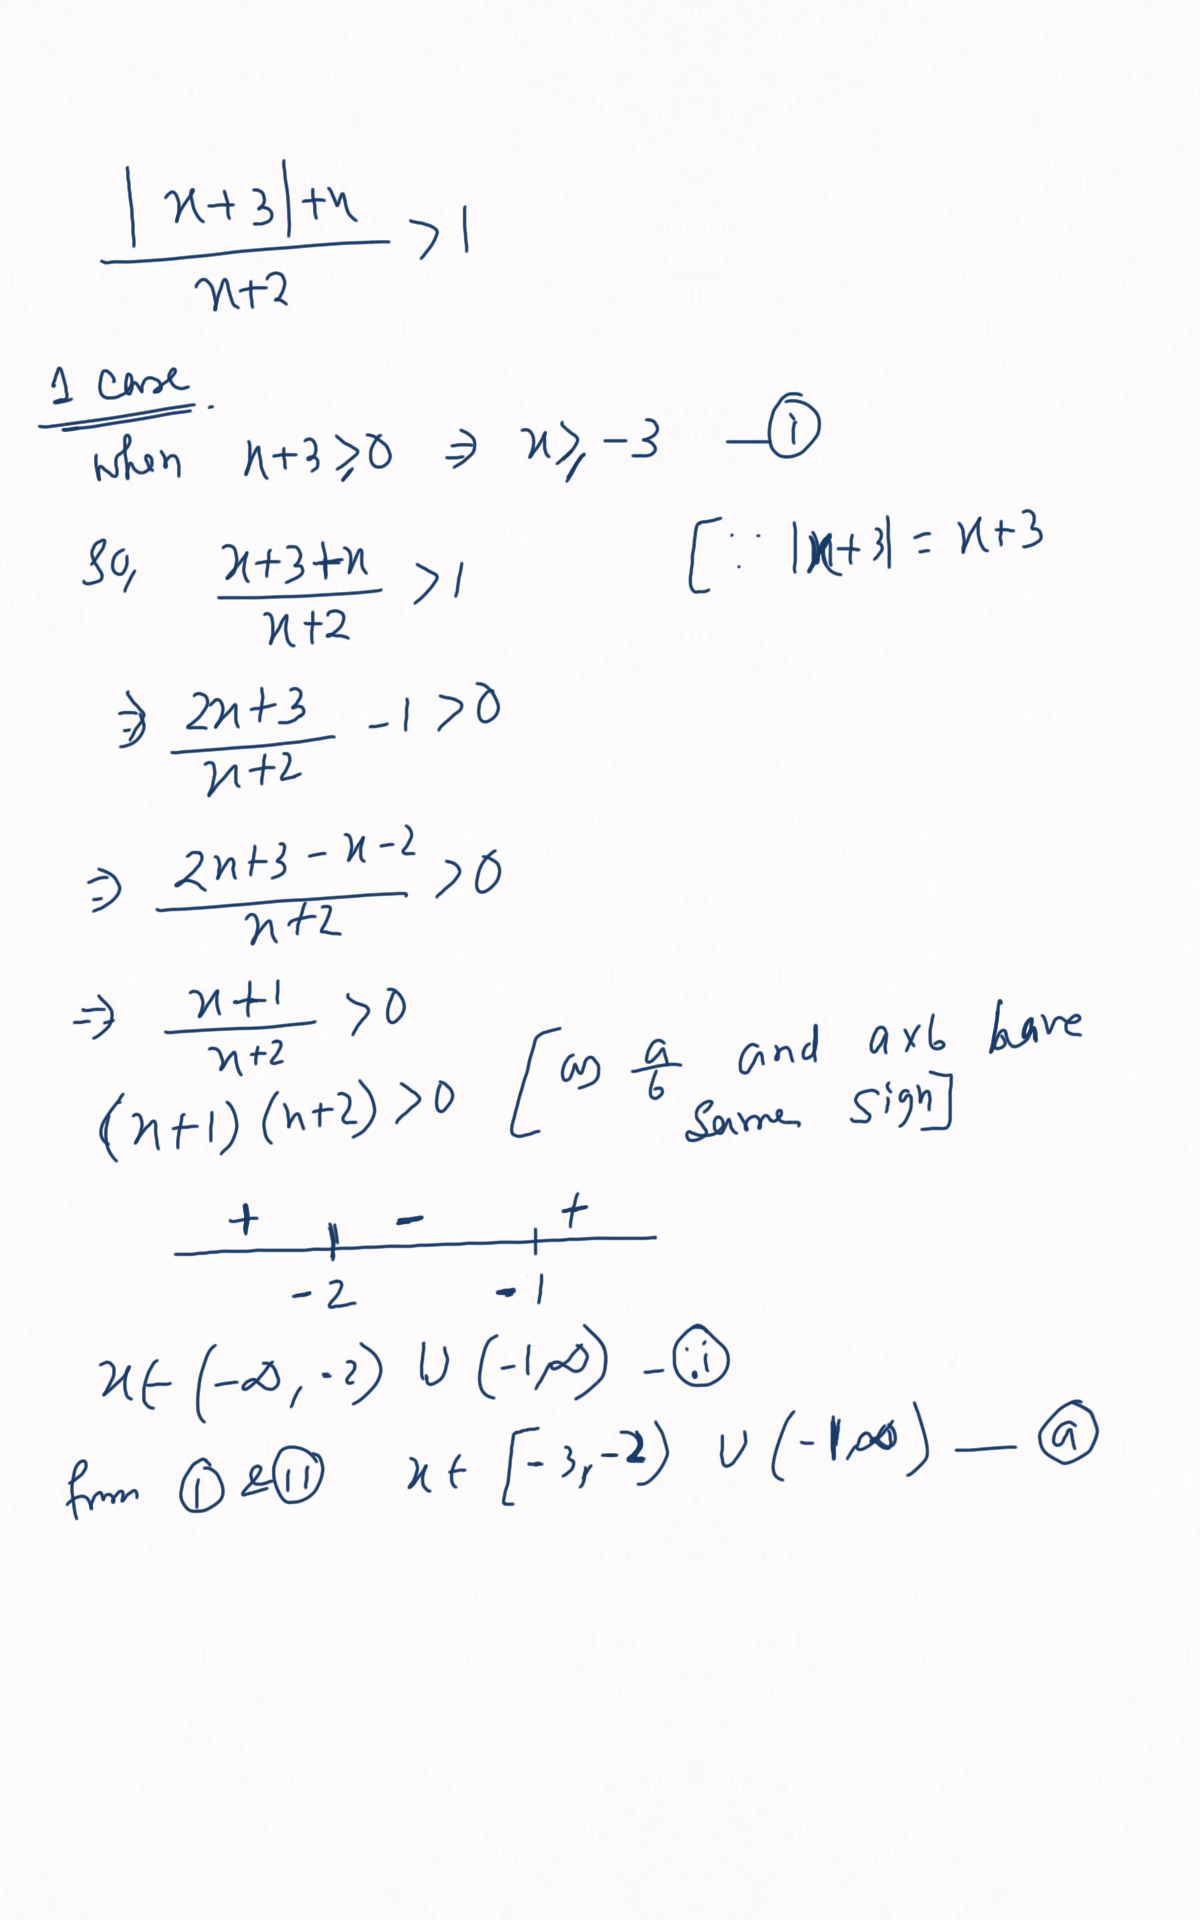 |x+3|+x / x+2 > 1
1 case.
when x+3 ≥ 0 ⇒ x ≥ -3 — (i)
So, x+3+x / x+2 > 1 [∵ |x+3| = x+3
⇒ 2x+3 / x+2 - 1 > 0
⇒ 2x+3-x-2 / x+2 > 0
⇒ x+1 / x+2 > 0
(x+1) (x+2) > 0 [as a/b and a×b have
same sign]
+ - +
-2 -1
x ∈ (-∞, -2) ∪ (-1,∞) - (ii)
from (i) & (ii) x ∈ [-3, -2) ∪ (-1,∞) — (a)